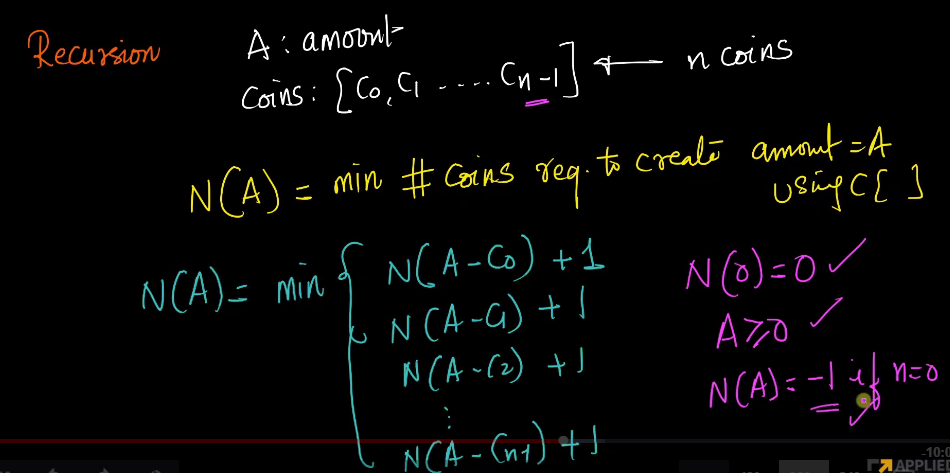 Recursion
A : amount
coins : [C0, C1 ..... Cn-1] ← n coins
N(A) = min # coins req. to create amount = A
using C[ ]
N(A) = min { N(A-C0) + 1
N(A-C1) + 1
N(A-C2) + 1
⋮
N(A-Cn-1) + 1
N(0) = 0 ✓
A ≥ 0 ✓
N(A) = -1 if n=0
-10:
APPLIE